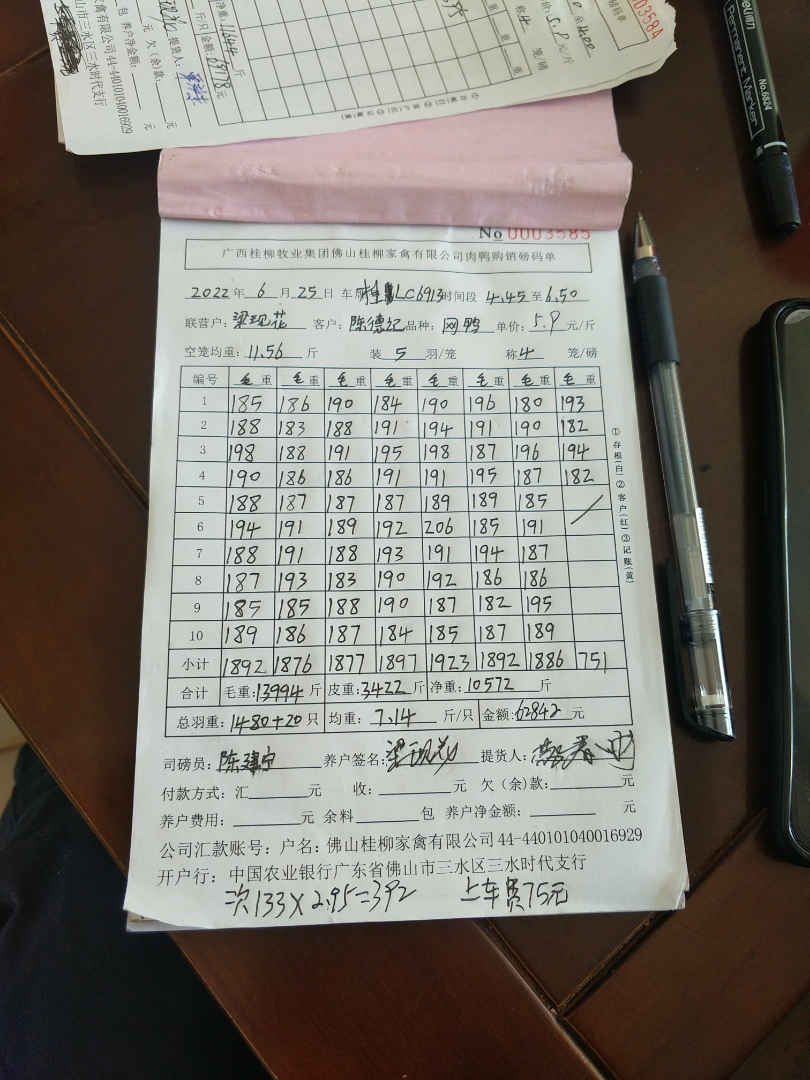 No 0003585
广西桂柳牧业集团佛山桂柳家禽有限公司肉鸭购销磅码单
2022年 6月25日 车牌 LC6913 时间段 4.45至6.50
联营户: 梁现花 客户: 陈德记 品种: 网鸭 单价: 5.9元/斤
空笼均重: 11.56 斤 装 5 羽/笼 称4 笼/磅
编号 毛重 毛重 毛重 毛重 毛重 毛重 毛重 毛重
1 185 186 190 184 190 196 180 193
2 188 183 188 191 194 191 190 182
3 198 188 191 195 198 187 196 194
4 190 186 186 191 191 195 187 182
5 188 187 187 187 189 189 185
6 194 191 189 192 206 185 191
7 188 191 188 193 191 194 187
8 187 193 183 190 192 186 186
9 185 185 188 190 187 182 195
10 189 186 187 184 185 187 189
小计 1892 1876 1877 1897 1923 1892 1886 751
合计 毛重:13994斤 皮重:3422斤 净重:10572 斤
总羽重: 1480+20只 均重: 7.14 斤/只 金额:62842元
司磅员: 陈建宁 养户签名: 梁现花 提货人:
付款方式: 汇 元 收: 元 欠(余)款: 元
养户费用: 元 余料 包 养户净金额: 元
公司汇款账号: 户名: 佛山桂柳家禽有限公司 44-440101040016929
开户行: 中国农业银行广东省佛山市三水区三水时代支行
次133×2.95=392 上车费75元
①存根(白)②客户(红)③记账(黄)
0003584
deli得力
Permanent Marker
No.6824